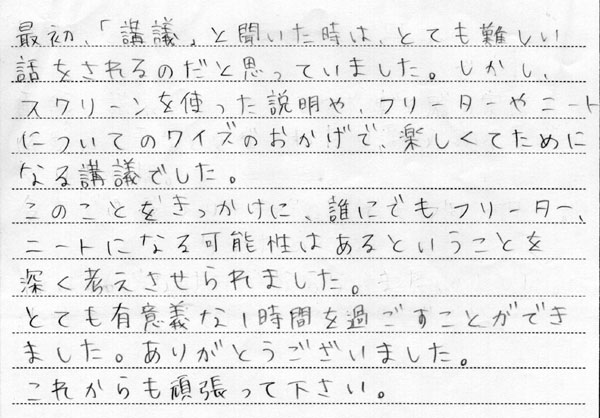 最初、「講議」と聞いた時は、とても難しい
話をされるのだと思っていました。しかし、
スクリーンを使った説明や、フリーターやニート
についてのクイズのおかげで、楽しくてために
なる講議でした。
このことをきっかけに、誰にでもフリーター、
ニートになる可能性はあるということを
深く考えさせられました。
とても有意義な1時間を過ごすことができ
ました。ありがとうございました。
これからも頑張って下さい。